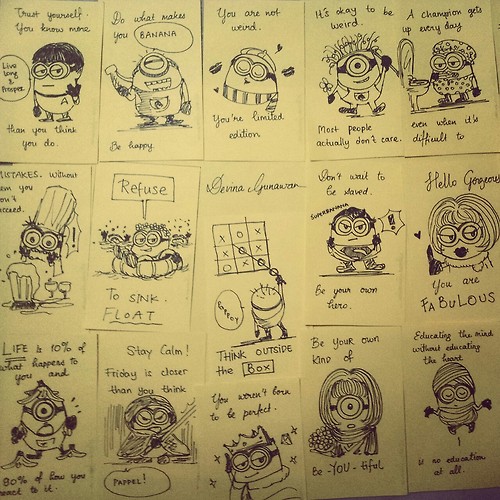 Trust yourself.
You know more
Live
long
&
Prosper
A
than you think
you do.
Do what makes
you BANANA
Be happy.
You are not
weird.
You're limited
edition
It's okay to be
weird.
Most people
actually don't care.
A champion gets
up every day
even when it's
difficult to
MISTAKES. Without
em you
on't
cceed.
Refuse
TO SINK.
FLOAT
Devina Gunawan
X O X
THINK OUTSIDE
the Box
Don't wait to
be saved.
SUPERBANANA
Be your own
hero.
Hello Gorgeous
You are
FABULOUS
LIFE is 10% of
what happens to
you and
80% of how you
react to it.
Stay Calm!
Friday is closer
than you think
PAPPEL!
You weren't born
to be perfect.
Be your own
kind of
Be-YOU-tiful
Educating the mind
without educating
the heart
is no education
at all.